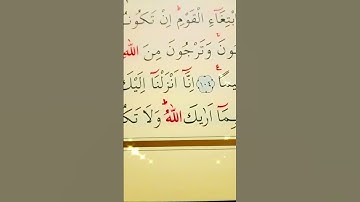 ابْتِغَٓاءِ الْقَوْمِۜ اِنْ تَكُونُ
ـُٔونَ وَتَرْجُونَ مِنَ اللّٰهِ
ـيمًا ﴿١٠٤﴾ اِنَّٓا اَنْزَلْنَٓا اِلَيْكَ
بِمَٓا اَرٰيكَ اللّٰهُۜ وَلَا تَكُ